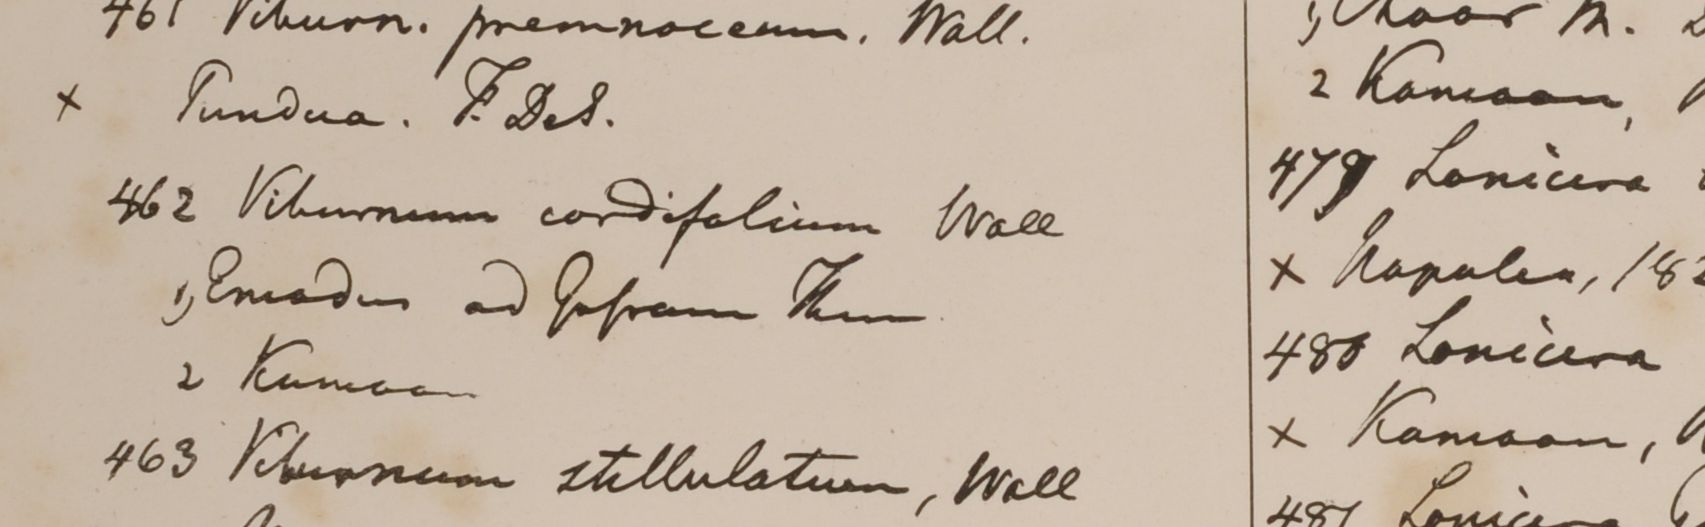 461 Viburn. premnaceum. Wall.
× Pundua. F. DeS.
462 Viburnum cordifolium Wall
1, Emodus ad Gosram Than
2 Kumaon
463 Viburnum stillulatum, Wall
1, Choor M.
2 Kamaon,
479 Lonicera
× Napalia, 182
480 Lonicera
× Kamaon,
481 Lonicera